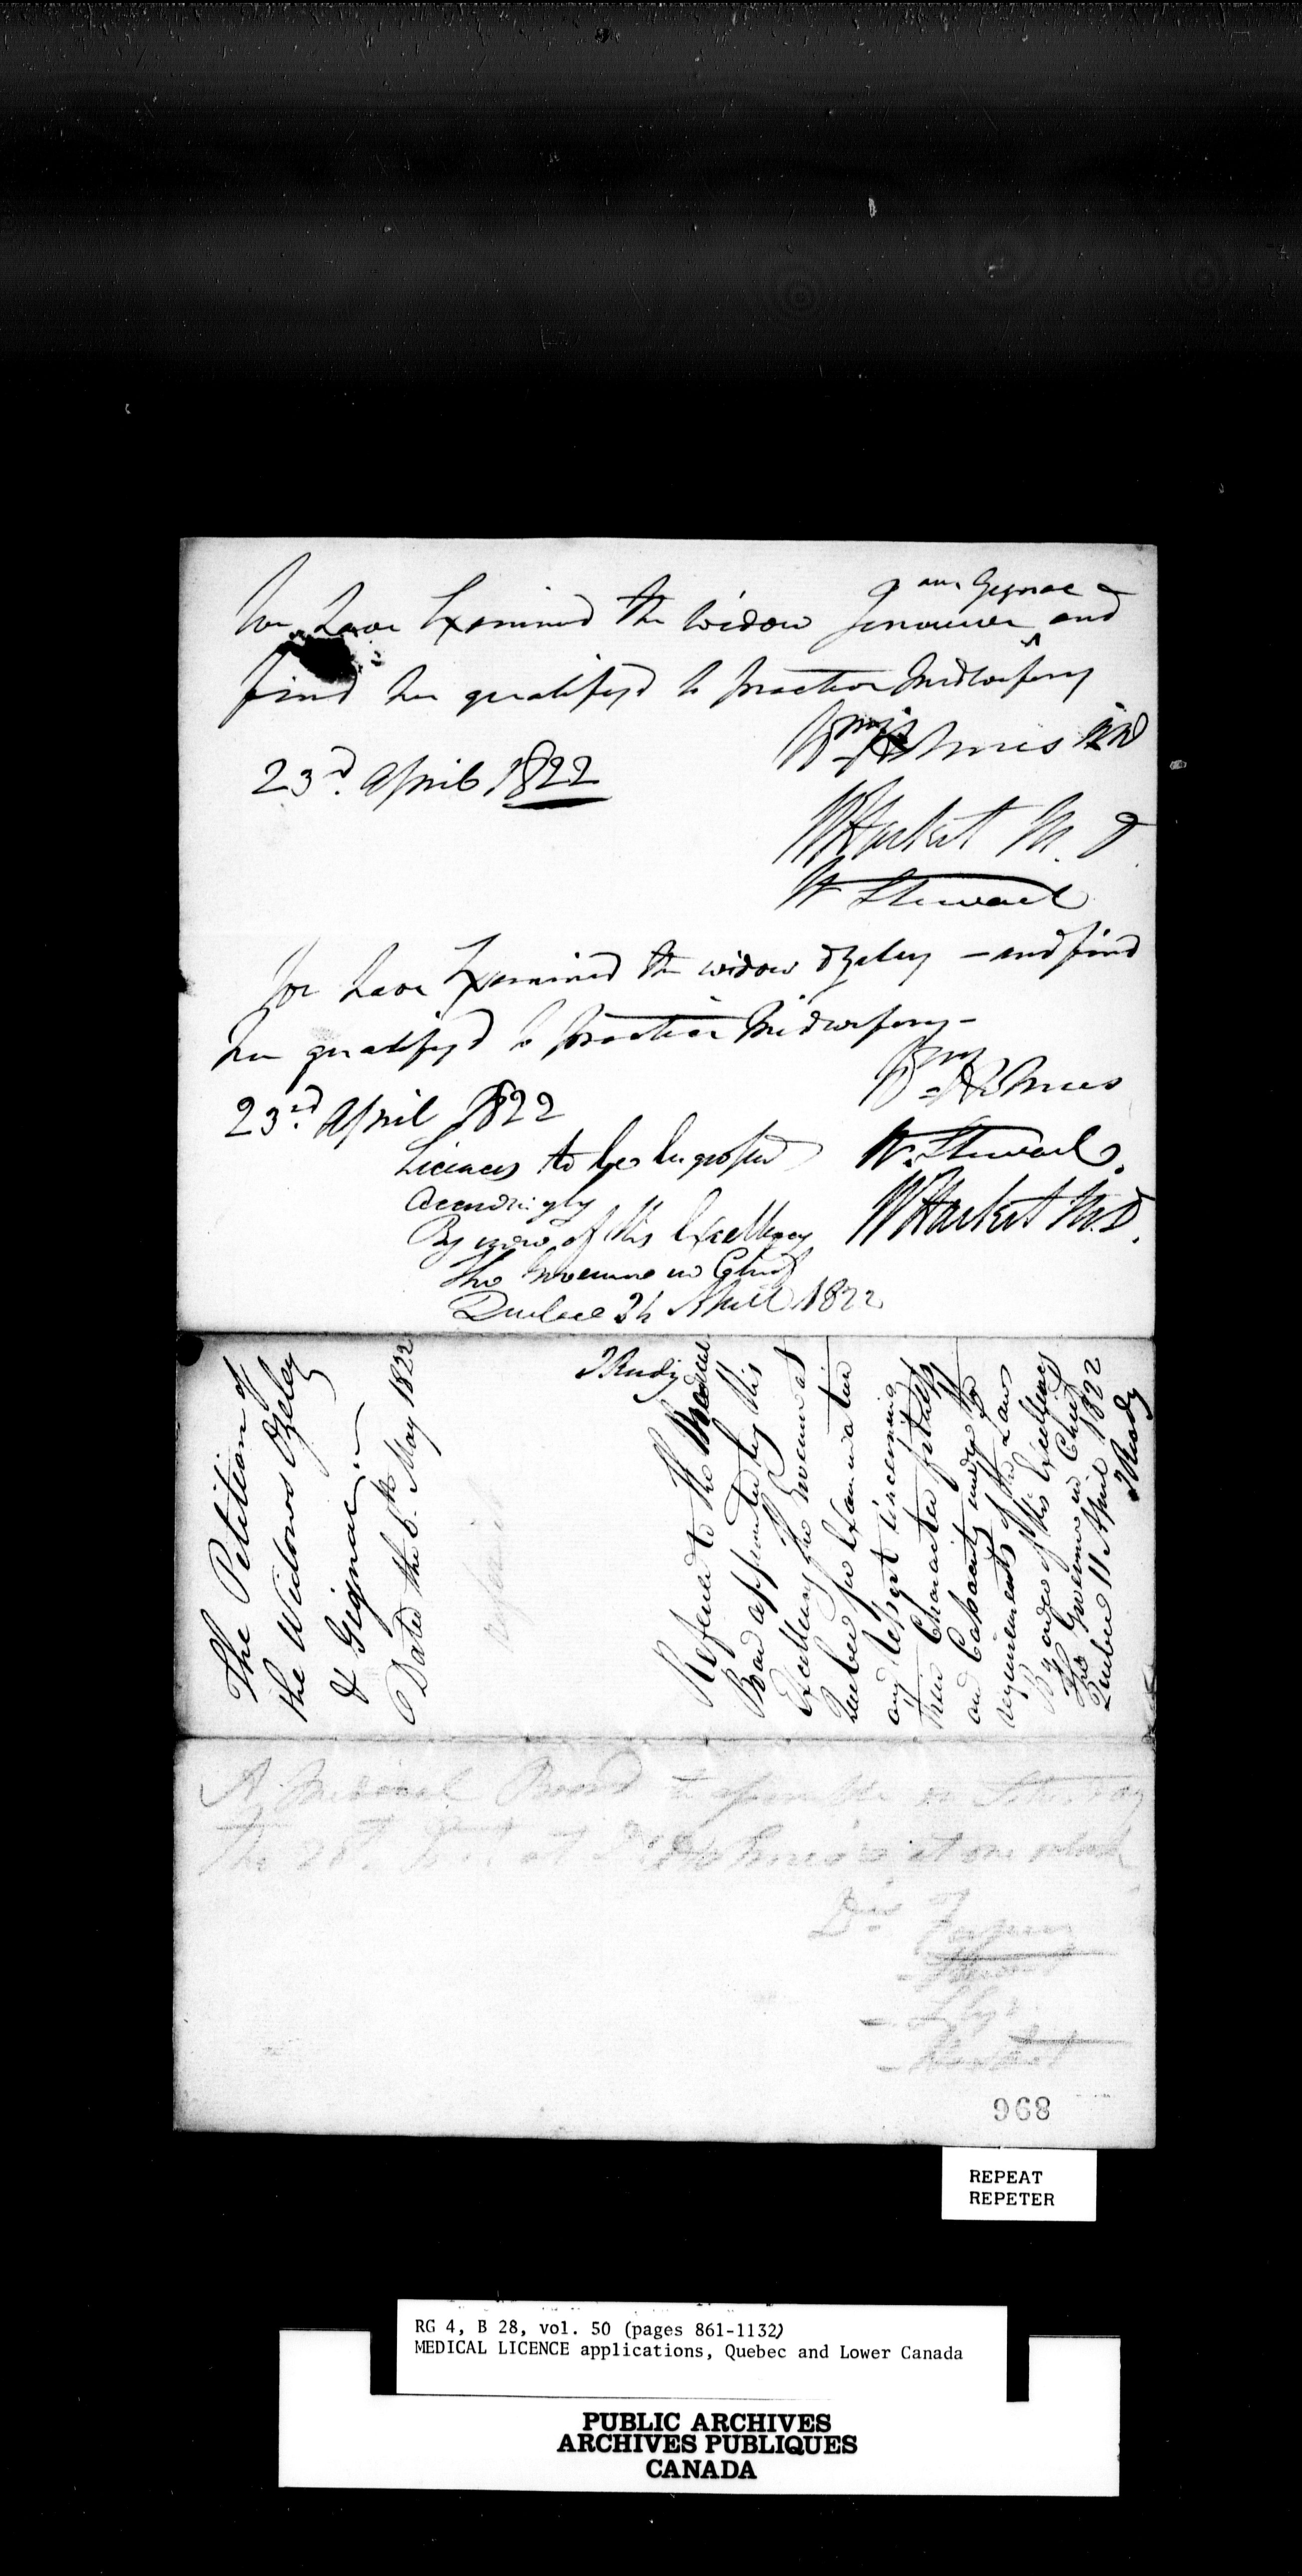 We have Examined the widow Gignac and
find her qualifyd to practice Midwifery
Wm Holmes MD
23rd April 1822
W Hacket M. D
W Stewart
We have Examined the widow Ozeley – and find
her qualifyd to practice Midwifery –
23rd April 1822
Wm Holmes
W. Stewart
W Hacket M.D.
Licences to be Engrossed
Accordingly
By order of His Excellency
The Governor in Chief
Quebec 24 April 1822
J Ready
The Petition of
the Widows Ozeley
& Gignac
Dated the 8th May 1822
Refered to the Medical
Board appointed by His
Excellency the Governor at
Quebec for Examination
and report concerning
their Character fitness
and Capacity under the
requirements of the Law
By order of His Excellency
The Governor in Chief
Quebec 11 April 1822
J Ready
A Medical Board to assemble on Saturday
The 28th at Dr Holmes's at one oclock
Drs
Stewart
Hacket
968
REPEAT
REPETER
RG 4, B 28, vol. 50 (pages 861-1132)
MEDICAL LICENCE applications, Quebec and Lower Canada
PUBLIC ARCHIVES
ARCHIVES PUBLIQUES
CANADA